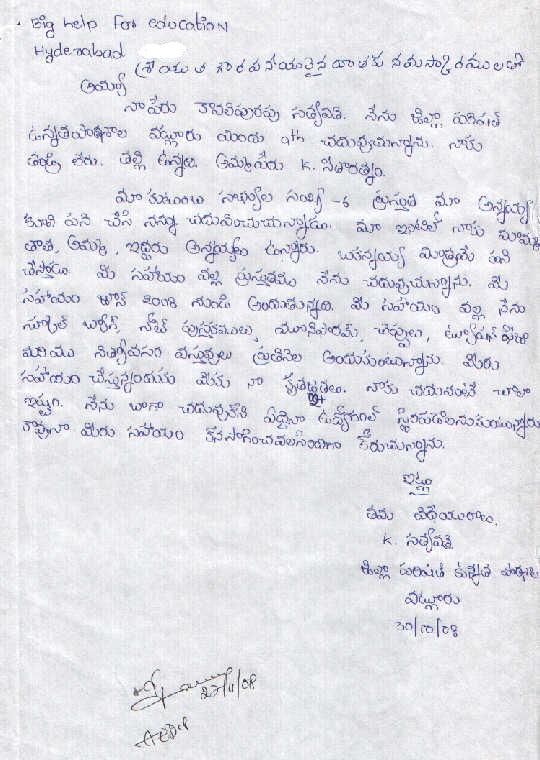 Big help for education
Hyderabad
శ్రీయుత గౌరవనీయులైన దాతకు నమస్కారములతో
అయ్యా
నా పేరు కావలిపురపు సత్యవతి. నేను జిల్లా పరిషత్
ఉన్నతపాఠశాల వట్లూరు యందు 9th చదువుచున్నాను. నాకు
తండ్రి లేరు. తల్లి ఉన్నది. అమ్మపేరు K. సీతారత్నం.
మా కుటుంబ సభ్యుల సంఖ్య - 6 ప్రస్తుత మా అన్నయ్య
కూలి పని చేసి నన్ను చదివించుచున్నాడు. మా ఇంటిలో నాకు మామ్మ
తాత, అమ్మ, ఇద్దరు అన్నయ్యలు ఉన్నారు. ఒకన్నయ్య మాత్రమే పని
చేస్తాడు. మీ సహాయం వల్ల ప్రస్తుతము నేను చదువుచున్నాను. మీ
సహాయం జూన్ 2008 నుండి అందుతున్నది. మీ సహాయం వల్ల నేను
స్కూల్ బ్యాగ్, నోట్ పుస్తకములు, యూనిఫారమ్, చెప్పులు, ట్యూషన్ ఫీజు
మరియు నిత్యావసర వస్తువులు ప్రతినెల అందుకుంటున్నాను. మీరు
సహాయం చేస్తున్నందుకు మీకు నా కృతజ్ఞతలు. నాకు చదువంటే చాలా
ఇష్టం. నేను బాగా చదువుకొని ఏదైనా ఉద్యోగంలో స్థిరపడాలనుకుంటున్నాను
కావున మీరు సహాయం కొనసాగించవలసిందిగా కోరుచున్నాను.
ఇట్లు
తమ విధేయురాలు,
K. సత్యవతి
జిల్లా పరిషత్ ఉన్నత పాఠశాల
వట్లూరు
30/10/08
27/11/08